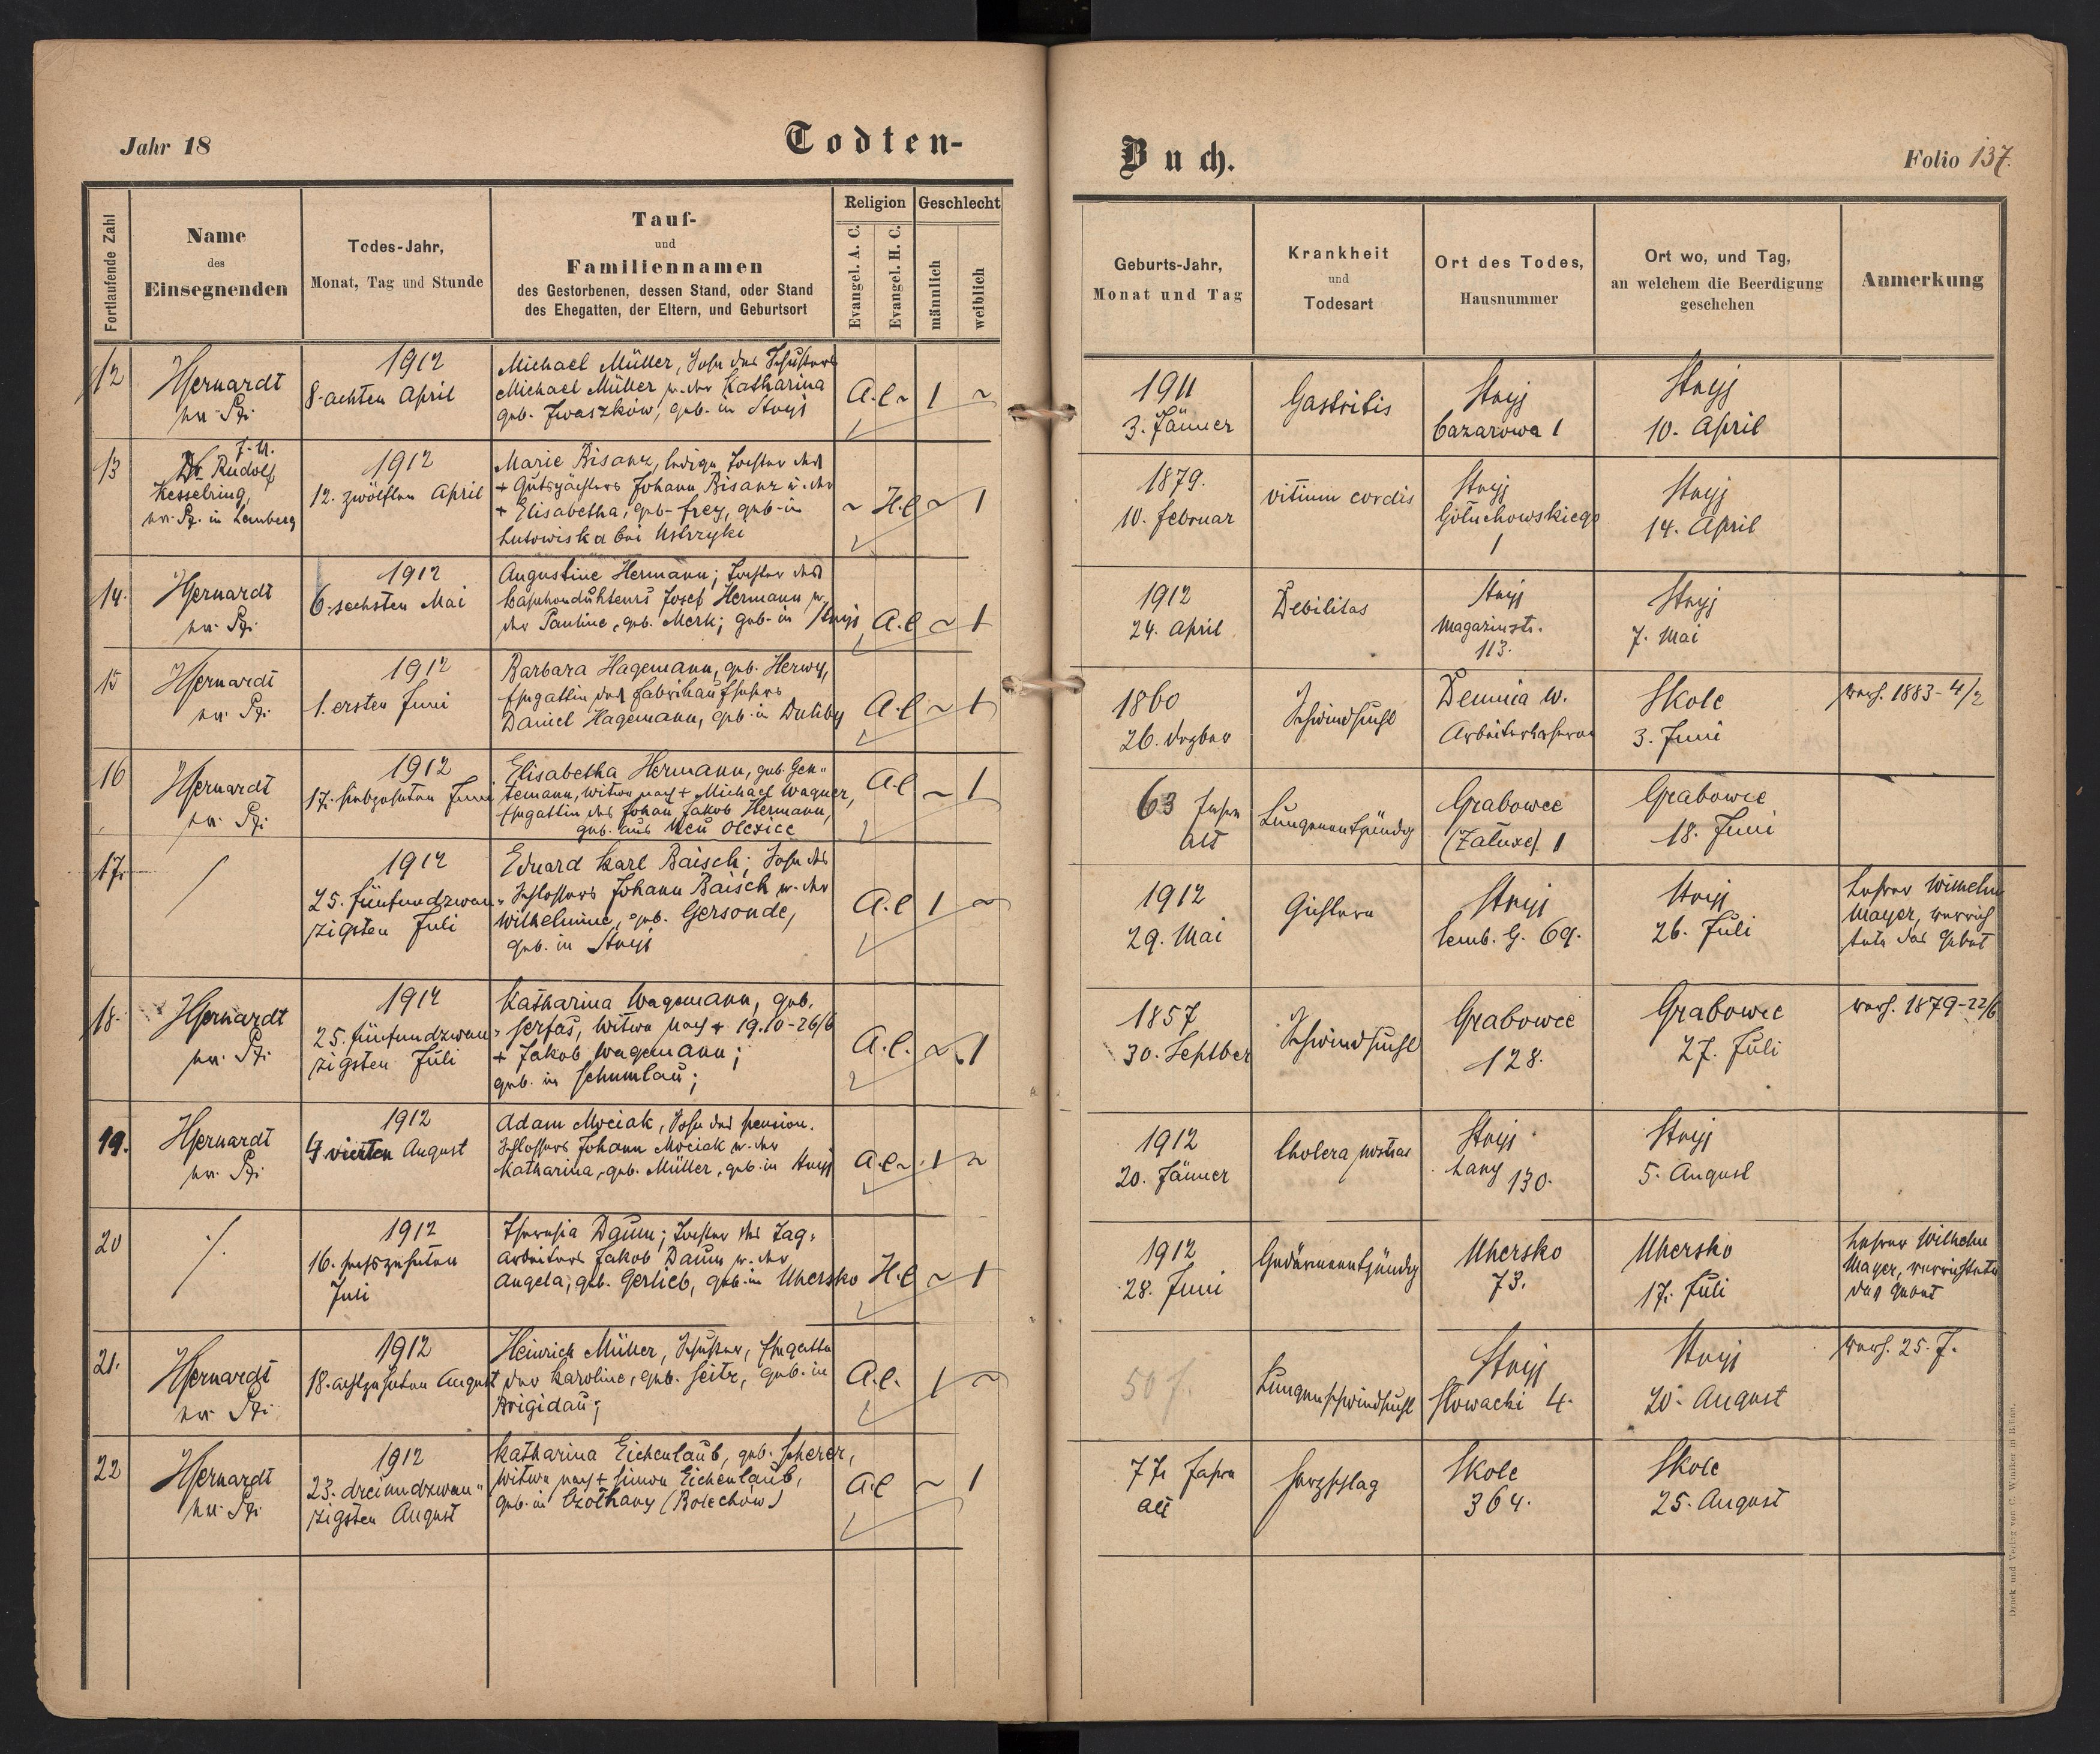 Jahr 18
Todten-
Buch.
Folio 137.
Fortlaufende Zahl
Name
des
Einsegnenden
Todes-Jahr,
Monat, Tag und Stunde
Tauf-
und
Familiennamen
des Gestorbenen, dessen Stand, oder Stand
des Ehegatten, der Eltern, und Geburtsort
Religion
Evangel. A. C.
Evangel. H. C.
Geschlecht
männlich
weiblich
Geburts-Jahr,
Monat und Tag
Krankheit
und
Todesart
Ort des Todes,
Hausnummer
Ort wo, und Tag,
an welchem die Beerdigung
geschehen
Anmerkung
12
1912
8. achten April
Michael Müller, Sohn des Schusters
Michael Müller u. der Katharina
geb. Iwaszków, geb. in Stryj
A.C. ~ 1 ~
1911
3. Jänner
Gastritis
Stryj
bazarowa 1
Stryj
10. April
13
Dr. Rudolf
Kesselring,
in Lemberg
1912
12. zwölften April
Marie Bisanz, ledige Tochter des
+ Gutspächters Johann Bisanz u. der
+ Elisabetha, geb. Frey, geb. in
Lutowiska bei Ustrzyki
~ H.C ~ 1
1879.
10. Februar
vitium cordis
Stryj
Gołuchowskiego
1
Stryj
14. April
14.
1912
6. sechsten Mai
Augustine Hermann; Tochter des
Josef Hermann u.
der Pauline, geb. Merk; geb. in Stryj
A.C ~ 1
1912
24. April
Debilitas
Stryj
Magazinstr.
113.
Stryj
7. Mai
15
1912
1. ersten Juni
Barbara Hagemann, geb. Herwy,
Ehegattin des Fabrikaufsehers
Daniel Hagemann, geb. in Duliby
A.C ~ 1
1860
26. Dezber
Schwindsucht
Demnia w.
Skole
3. Juni
verh. 1883-4/2
16
1912
17. siebzehnten Juni
Elisabetha Hermann, geb. Gen-
temann, Witwe nach + Michael Wagner,
Ehegattin des Johann Jakob Hermann,
geb. aus Neu Olexice
A.C ~ 1
63 Jahre
alt
Lungenentzündg
Grabowce
(Załuxe) 1
Grabowce
18. Juni
17.
1912
25. fünfundzwan-
zigsten Juli
Eduard Karl Baisch; Sohn des
Schlossers Johann Baisch u. der
Wilhelmine, geb. Gersonde,
geb. in Stryj
A.C 1 ~
1912
29. Mai
Gichtern
Stryj
Lemb. G. 69.
Stryj
26. Juli
Lehrer Wilhelm
Mayer, verrich
tete das Gebet
18.
1912
25. fünfundzwan-
zigsten Juli
Katharina Wagemann, geb.
Serfas, Witwe nach + 1910-26/6
+ Jakob Wagemann;
geb. in Schumlau;
A.C. ~ 1
1857
30. Septber
Schwindsucht
Grabowce
128.
Grabowce
27. Juli
verh. 1879-22/6
19.
1912
4 vierten August
Adam Mociak, Sohn des pension.
Schlossers Johann Mociak u. der
Katharina, geb. Müller, geb. in Stryj
A.C. ~ 1 ~
1912
20. Jänner
Cholera nostras
Stryj
Lany 130.
Stryj
5. August
20
1912
16. sechszehnten
Juli
Theresia Daum; Tochter des Tag-
arbeiters Jakob Daum u. der
Angela, geb. Gerlieb, geb. in Uhersko
H.C ~ 1
1912
28. Juni
Gedärmeentzündg
Uhersko
73.
Uhersko
17. Juli
Lehrer Wilhelm
Mayer, verrichtete
das Gebet
21.
1912
18. achtzehnten August
Heinrich Müller, Schuster, Ehegatte
der Karoline, geb. Seitz, geb. in
Brigidau;
A.C. 1 ~
50 J.
Lungenschwindsucht
Stryj
Słowacki 4.
Stryj
20. August
verh. 25. J.
22
1912
23. dreiundzwan-
zigsten August
Katharina Eichenlaub, geb. Scherer,
Witwe nach + Simon Eichenlaub,
geb. in Czołhany (Bolechów)
A.C ~ 1
77 Jahre
alt
Herzschlag
Skole
364.
Skole
25. August